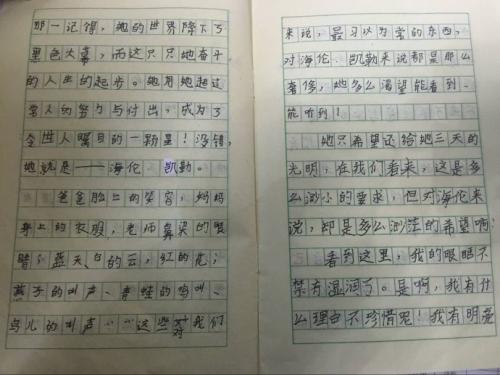 那一记得，她的世界降下了
黑色大幕，而这只只她奋斗
的人生的起步。她用她超过
常人的努力与付出，成为了
令世人瞩目的一颗星！没错，
她就是——海伦 凯勒。
爸爸脸上的笑容，妈妈
身上的衣服，老师鼻梁的眼
镜；蓝天，白的云，红的花；
燕子的叫声、青蛙的鸣叫、
鸟儿的叫声……这些对我们
来说，最习以为常的东西，
对海伦 凯勒来说都是那么
奢侈，她多么渴望能看到、
能听到！
她只希望还给她三天的
光明，在我们看来，这是多
么渺小的要求，但对海伦来
说，却是多么渺茫的希望啊
看到这里，我的眼眶不
禁有湿润了。是啊，我有什
么理由不珍惜呢！我有明亮